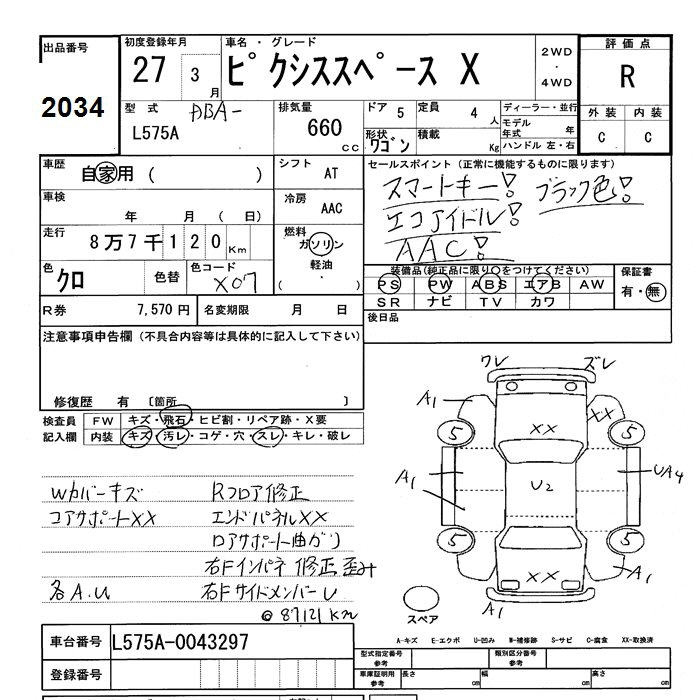 出品番号
2034
初度登録年月
27 3月
車名・グレード
ピクシススペース X
2WD・4WD
評価点
R
外装 内装
C C
型式 DBA-
L575A
排気量
660 cc
ドア 5
定員 4 人
形状 ワゴン
積載 Kg
ディーラー・並行
モデル年式 年
ハンドル 左・右
車歴
自家用 ( )
シフト AT
車検
年 月 ( 日)
冷房 AAC
走行
8万7千120Km
燃料
ガソリン
軽油
・
( )
色
クロ
色替
色コード
X07
R券 7,570円
名変期限 月 日
セールスポイント (正常に機能するものに限ります)
スマートキー! ブラック色!
エコアイドル!
AAC!
装備品(純正品に限り○をつけてください)
PS PW ABS エアB AW
SR ナビ TV カワ
保証書
有・無
後日品
注意事項申告欄 (不具合内容等は具体的に記入して下さい)
修復歴 有 〔箇所 〕
検査員記入欄
FW キズ・飛石・ヒビ割・リペア跡・X要
内装 キズ・汚レ・コゲ・穴・スレ・キレ・破レ
Wカバーキズ Rフロア修正
コアサポートXX エンドパネルXX
ロアサポート曲がり
右Fインパネ 修正歪み
各A.U 右FサイドメンバーU
@87121Km
ワレ ズレ
A1 XX XX
5 5
A1 U2 UA4
5 5
XX A1
A1
スペア
A-キズ E-エクボ U-凹み W-補修跡 S-サビ C-腐食 XX-取換済
車台番号 L575A-0043297
登録番号
型式指定番号 参考
類別区分番号 参考
車庫証明用 参考
長さ cm
幅 cm
高さ cm